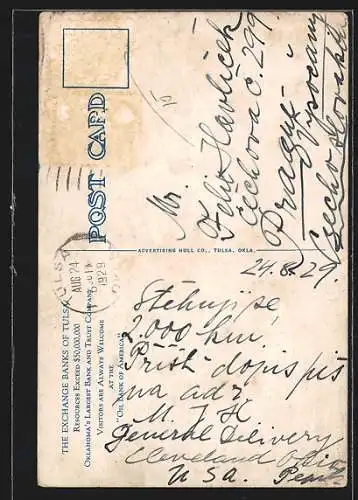 THE EXCHANGE BANKS OF TULSA
RESOURCES EXCEED $50,000,000
OKLAHOMA'S LARGEST BANK AND TRUST COMPANY
VISITORS ARE ALWAYS WELCOME
AT THE
"OIL BANK OF AMERICA"
POST CARD
TULSA
AUG 24
1929
ADVERTISING HULL CO., TULSA, OKLA.
Mr.
Julio Havlíček
čechova č. 299.
Prague
Vysočany
Czechoslovakia
24.8.29.
Stěhuji se
2.000 km.
Příšt dopis piš
na adr
M. J. H
General Delivery
Cleveland Ohio
USA.